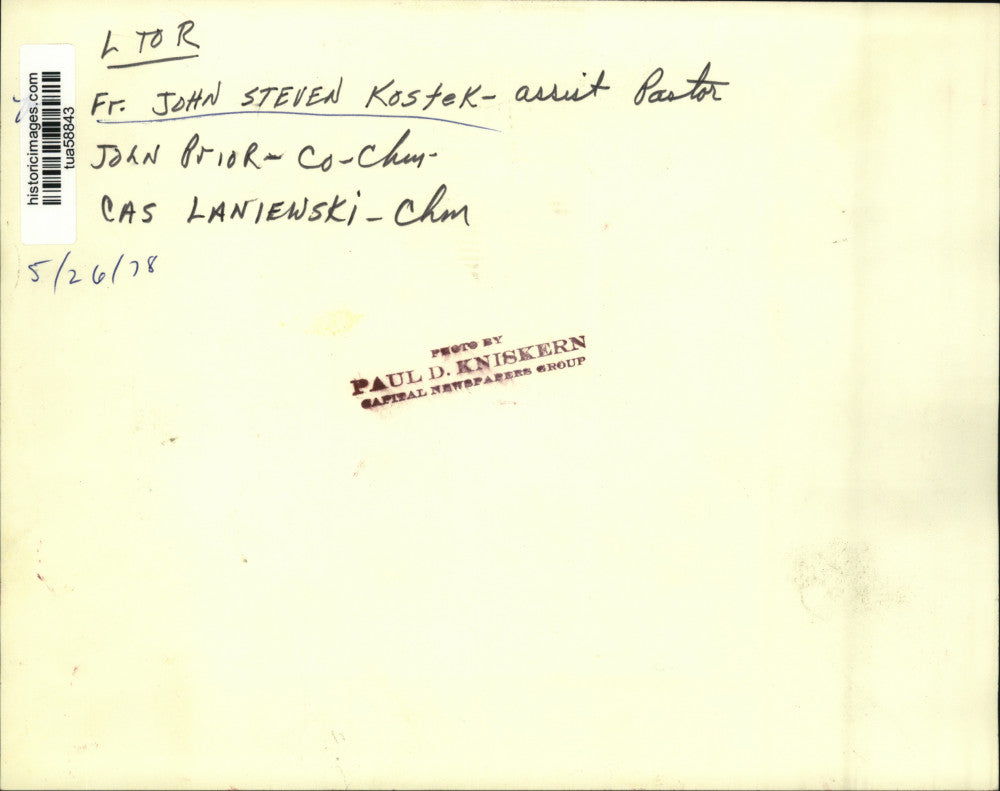 L TO R
Fr. JOHN STEVEN KosteK - assist Pastor
JOHN PrIOR - Co-Chm-
CAS LANIEWSKi - Chm
5/26/78
PHOTO BY
PAUL D. KNISKERN
CAPITAL NEWSPAPERS GROUP
historicimages.com
tua58843